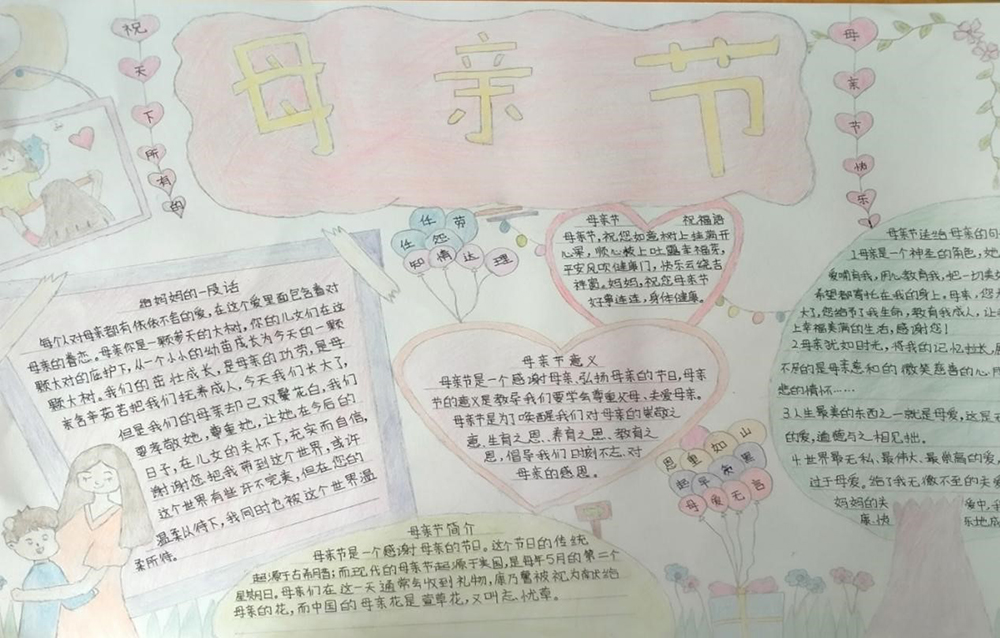 祝天下所有的
母亲节
母亲节快乐
任劳
任怨
知情达理
母亲节 祝福语
母亲节，祝您如意树上挂满开
心果，顺心枝上吐露幸福芽，
平安风吹健康门，快乐云绕吉
祥窗。妈妈，祝您母亲节
好事连连，身体健康。
给妈妈的一段话
每个人对母亲都有依依不舍的爱，在这个爱里面包含着对
母亲的眷恋。母亲你是一颗参天的大树，你的儿女们在这
颗大树的庇护下，从一个小小的幼苗成长为今天的一颗
颗大树。我们的茁壮成长，是母亲的功劳，是母
亲含辛茹苦把我们抚养成人，今天我们长大了，
但是我们的母亲却已双鬓花白，我们
要孝敬她，尊重她，让她在今后的
日子，在儿女的关怀下，充实而自信，
谢谢您把我带到这个世界，或许
这个世界有些许不完美，但在您的
温柔以待下，我同时也被这个世界温
柔所待。
母亲节意义
母亲节是一个感谢母亲、弘扬母亲的节日，母亲
节的意义是教导我们要学会尊重父母、关爱母亲。
母亲节是为了唤醒我们对母亲的崇敬之
意、生育之恩、养育之恩、教育之
恩，倡导我们日刻不忘对
母亲的感恩。
恩重如山
起早贪黑
母爱无言
母亲节简介
母亲节是一个感谢母亲的节日。这个节日的传统
起源于古希腊；而现代的母亲节起源于美国，是每年5月的第二个
星期日。母亲们在这一天通常会收到礼物，康乃馨被视为献给
母亲的花，而中国的母亲花是萱草花，又叫忘忧草。
母亲节送给母亲的句
1母亲是一个神圣的角色，她
爱哺育我，用心教育我，把一切美
希望都寄托在我的身上，母亲，您
大了，您给予了我生命，教育我成人，让
上幸福美满的生活，感谢您！
2母亲犹如时光，将我的记忆拉长，
不尽的是母亲慈和的微笑慈善的心
您的情怀……
3人生最美的东西之一就是母爱，这是
的爱，道德与之相见拙。
4世界最无私、最伟大、最崇高的爱，
过于母爱。给了我无微不至的关
妈妈的失 爱中，
康、快 乐地成